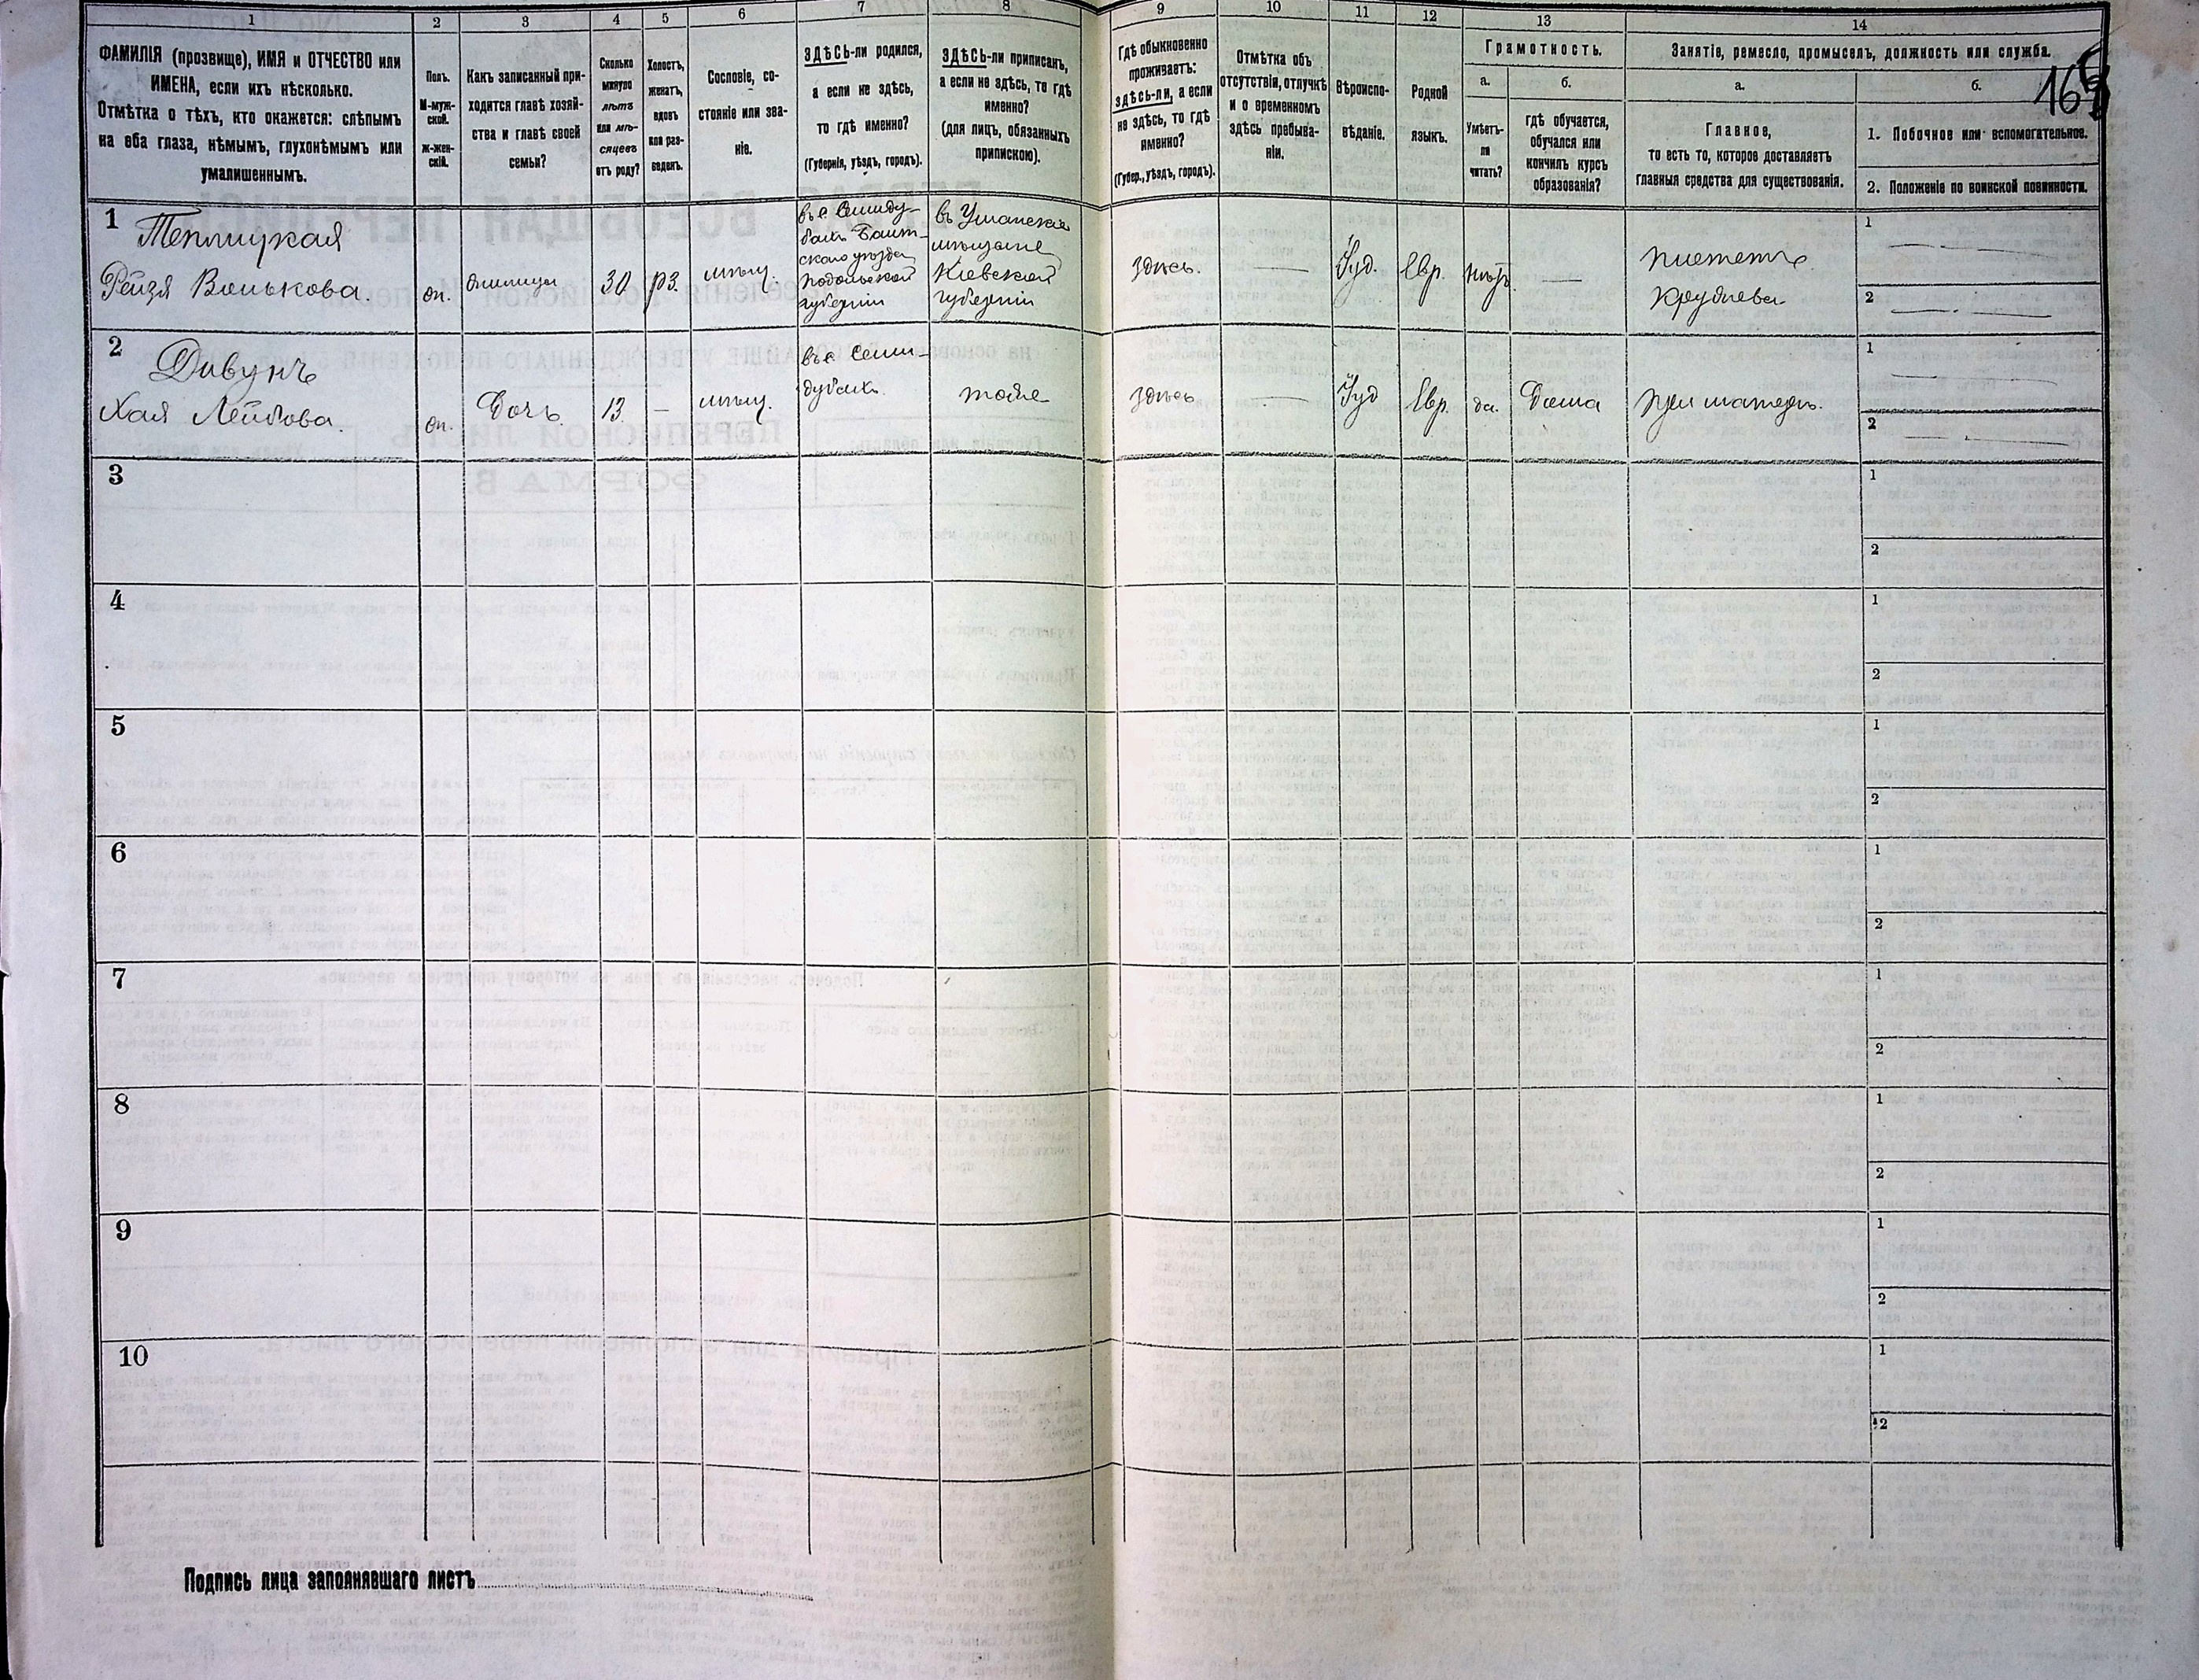 1
2
3
4
5
6
7
8
9
10
11
12
13
14
ФАМИЛІЯ (прозвище), ИМЯ и ОТЧЕСТВО или
ИМЕНА, если ихъ нѣсколько.
Отмѣтка о тѣхъ, кто окажется: слѣпымъ
на оба глаза, нѣмымъ, глухонѣмымъ или
умалишеннымъ.
Полъ.
М-муж-
ской.
ж-жен-
скій.
Какъ записанный при-
ходится главѣ хозяй-
ства и главѣ своей
семьи?
Сколько
минуло
лѣтъ
или мѣ-
сяцевъ
отъ роду?
Холостъ,
женатъ,
вдовъ
или раз-
веденъ.
Сословіе, со-
стояніе или зва-
ніе.
ЗДѢСЬ-ли родился,
а если не здѣсь,
то гдѣ именно?
(Губернія, уѣздъ, городъ).
ЗДѢСЬ-ли приписанъ,
а если не здѣсь, то гдѣ
именно?
(для лицъ, обязанныхъ
припискою).
Гдѣ обыкновенно
проживаетъ:
здѣсь-ли, а если
не здѣсь, то гдѣ
именно?
(Губер., уѣздъ, городъ).
Отмѣтка объ
отсутствіи, отлучкѣ
и о временномъ
здѣсь пребыва-
ніи.
Вѣроиспо-
вѣданіе.
Родной
языкъ.
Грамотность.
а.
Умѣетъ-
ли
читать?
б.
гдѣ обучается,
обучался или
кончилъ курсъ
образованія?
Занятіе, ремесло, промыселъ, должность или служба.
а.
Главное,
то есть то, которое доставляетъ
главныя средства для существованія.
б.
1. Побочное или вспомогательное.
2. Положеніе по воинской повинности.
1
Теплицкая
Рейзя Волькова.
30
рз.
мѣщ.
въ с. Семиду-
бахъ Балт-
скаго уѣзда
Подольской
губерніи
въ Уманскіе
мѣщане
Кіевской
губерніи
здѣсь.
Іуд.
Евр.
нѣтъ
1
2
2
Довунъ
Хая Лейбова.
Дочь
13
—
мѣщ.
въ с. Семи-
дубахъ
тоже
здѣсь
Іуд
Евр.
да.
Дома
при матери.
1
2
3
1
2
4
1
2
5
1
2
6
1
2
7
1
2
8
1
2
9
1
2
10
1
2
Подпись лица заполнявшаго листъ